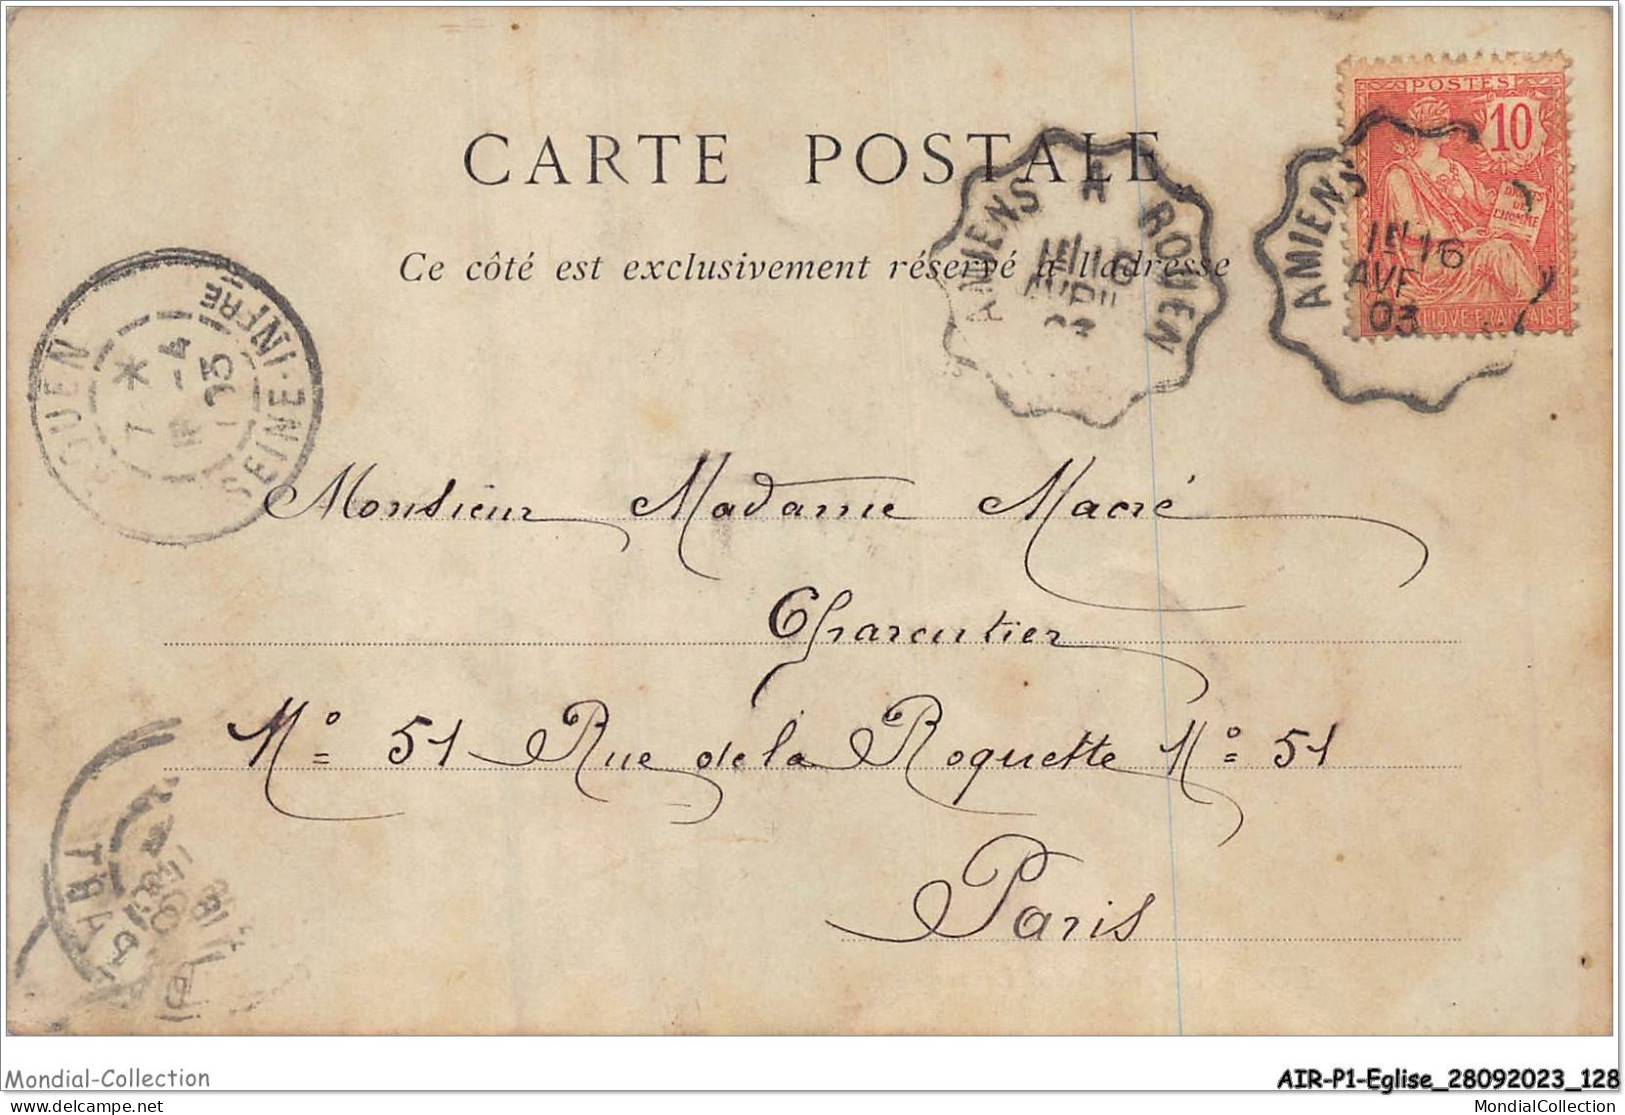 POSTES
10
DROITS
DE
L'HOMME
CARTE POSTALE
AMIENS A ROUEN
16
AVRIL
03
AMIENS
16
03
Ce côté est exclusivement réservé à l'adresse
ROUEN
SEINE-INFRE
7 *
16 -4
03
Monsieur Madame Macré
Charcutier
No 51 Rue de la Roquette No 51
Paris
Mondial-Collection
AIR-P1-Eglise_28092023_128
delcampe.net
MondialCollection